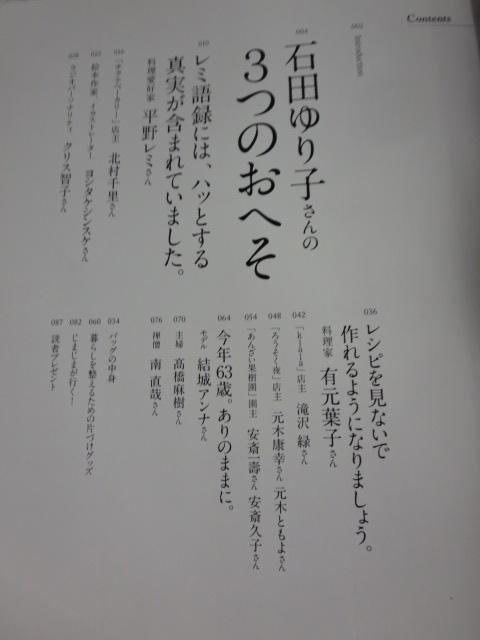 Contents
002
Introduction
004
石田ゆり子さんの
3つのおへそ
010
レミ語録には、ハッとする
真実が含まれていました。
料理愛好家 平野レミさん
016
「チクテベーカリー」店主 北村千里さん
022
絵本作家、イラストレーター ヨシタケシンスケさん
028
ラジオパーソナリティ クリス智子さん
036
レシピを見ないで
作れるようになりましょう。
料理家 有元葉子さん
042
店主 滝沢 緑さん
048
「ろうそく夜」店主 元木康幸さん 元木ともよさん
054
「あんざい果樹園」園主 安斎一壽さん 安斎久子さん
064
今年63歳。ありのままに。
モデル 結城アンナさん
070
主婦 髙橋麻樹さん
076
禅僧 南 直哉さん
034
バッグの中身
060
暮らしを整えるための片づけグッズ
082
じままじまが行く!
087
読者プレゼント